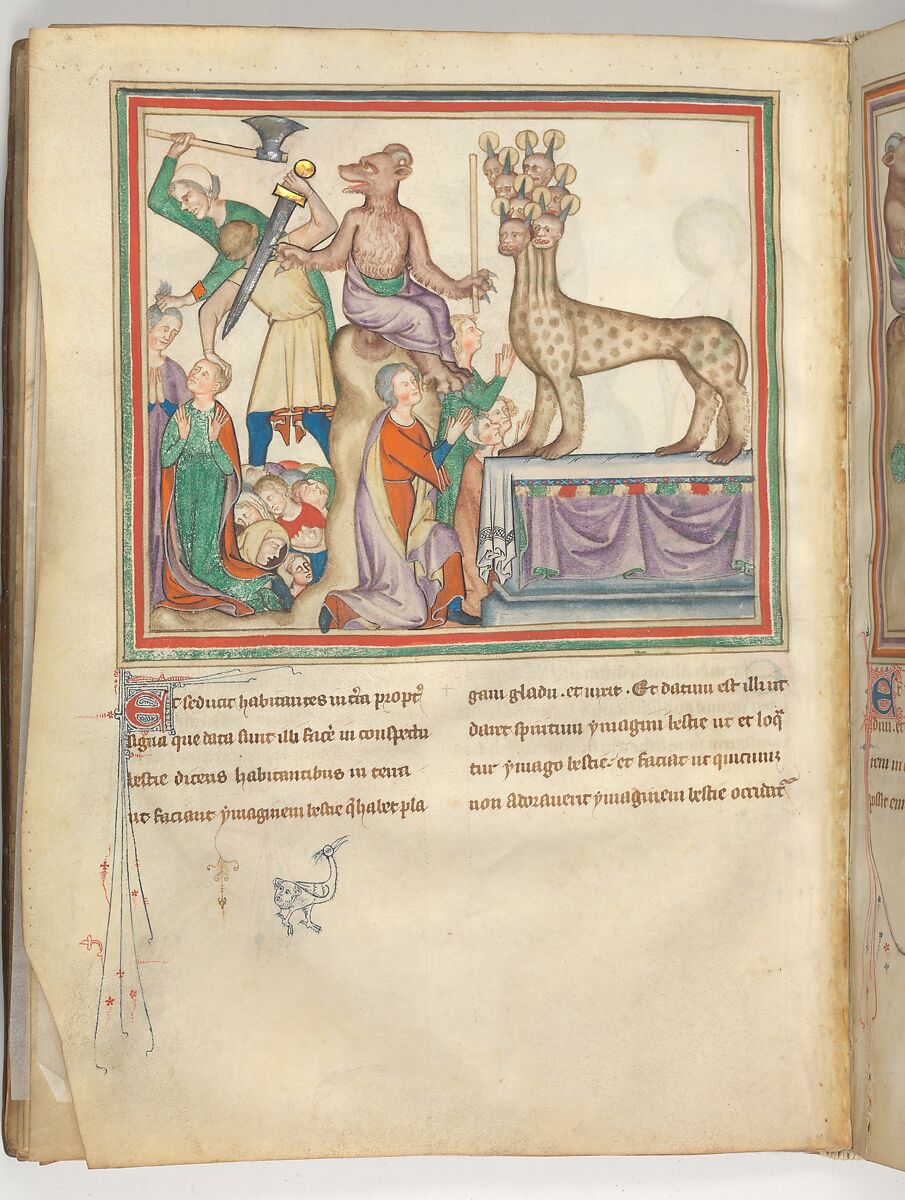 Et seducit habitantes in tr̄a propt̄
signa que data sunt illi facē in conspectu
bestie dicens habitantibus in terra
ut faciant ymaginem bestie q̄ habet pla
gam gladii . et uixit . Et datum est illi ut
daret spiritum ymagini bestie ut et loq̄
tur ymago bestie et faciat ut quicunqꝫ
non adorauerit ymaginem bestie occidat̄
E